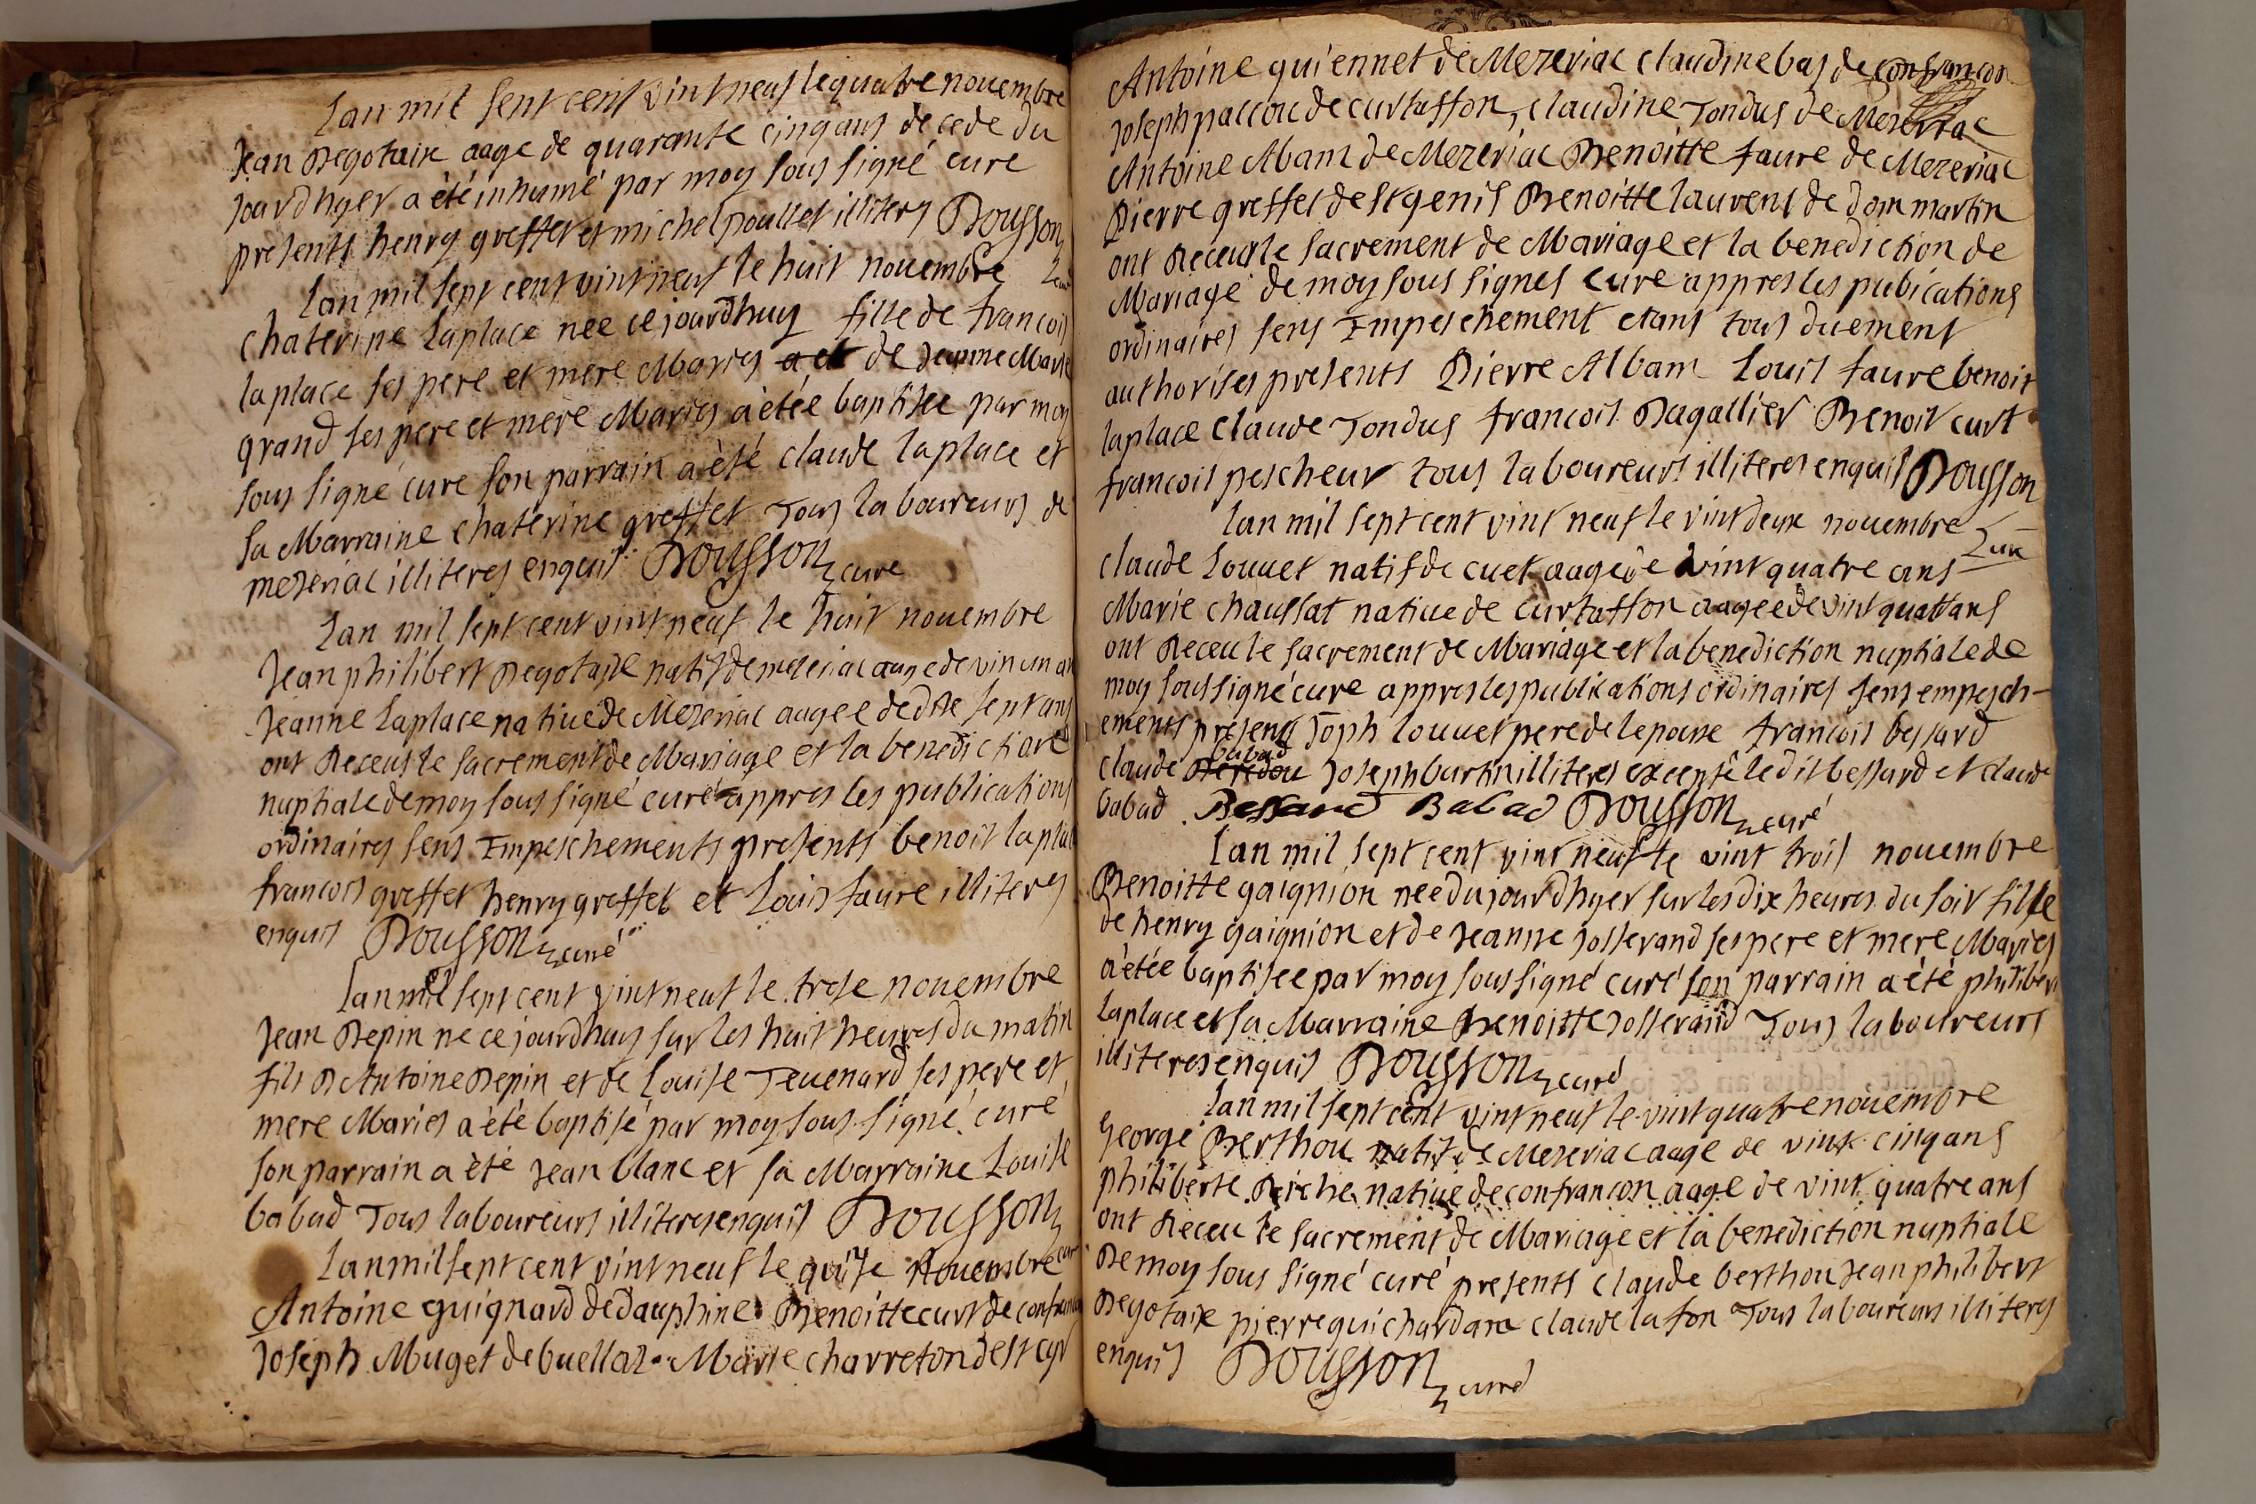 Lan mil sent cent vint neuf le quatre nouembre
Jean Regotaix aage de quarante cinq ans decede du
jourdhyer a été inhumé par moy sous signé cure
presents henry greffet et michel poullet illiteres Bousson
cure
Lan mil sept cent vint neuf le huit nouembre
Chaterine Laplace née cejourdhuy fille de francois
laplace ses pere et mere Maries de Jeanne Marie
grand ses pere et mere Maries a étée baptisée par moy
sous signé cure son parrain a été claude laplace et
sa Marraine chaterine greffet Tous laboureurs de
mezeriac illiteres enquis Bousson cure
Lan mil sept cent vint neuf le huit nouembre
Jean philibert Regotaix natif de mezeriac aage de vin un an
Jeanne Laplace natiue de Mezeriac aagee de dise sept ans
ont Receus le sacrement de Mariage et la benediction
nuptiale de moy sous signé curé appres les publications
ordinaires sens Impeschements presents benoit lapla
francois greffet henry greffet et Louis faure illiteres
enquis Bousson curé
Lan mil sept cent vint neuf le trese nouembre
Jean Repin ne ce jourdhuy sur les huit heures du matin
fils D Antoine Repin et de Louise Teuenard ses pere et
mere Maries a été baptisé par moy sous signé curé
son parrain a été Jean blanc et sa Marraine Louise
babad Tous laboureurs illiteres enquis Bousson
cure
Lan mil sept cent vint neuf le quise Nouembre
Antoine guignard de dauphine Benoitte curt de confran
Joseph Muget de buellas Marie charreton de st cyr
Antoine quiennet de Mezeriac claudine bas de confrancon
Joseph paccou de curtasson, claudine Tondus de Mezeriac
Antoine Abam de Mezeriac Benoitte faure de Mezeriac
Pierre greffet de st genis Benoitte laurent de dom martin
ont Receus le sacrement de Mariage et la benediction de
Mariage de moy sous signes cure appres les pubications
ordinaires sens Impeschement etans tous duement
authorises presents Pierre Albam Louis faure benoit
laplace claude Tondus francois Ragallier Benoit curt
francois pescheur tous laboureurs illiteres enquis Bousson
cure
Lan mil sept cent vint neuf le vint deux nouembre
claude Louuet natif de cuet aage de vint quatre ans
Marie chaussat natiue de curtasson aagee de vint quattans
ont Receu le sacrement de Mariage et la benediction nuptiale de
moy soussigné cure appres les publications ordinaires sens empesch-
ements presens Joph louuet pere de lepouse francois bessard
babad
claude Joseph burtin illiteres excepte le dit bessard et claude
babad Bessard Babad Bousson curé
Lan mil sept cent vint neuf le vint trois nouembre
Benoitte gaignion nee du jourdhyer sur les dix heures du soir fille
de henry gaignion et de Jeanne Josserand ses pere et mere Maries
a étée baptisee par moy soussigné curé son parrain a été philiber
Laplace et sa Marraine Benoitte Josserand Tous laboureurs
illiteres enquis Bousson curé
Lan mil sept cent vint neuf le vint quatre nouembre
George Berthou natif de Mezeriac aage de vint cinq ans
philiberte Riche natiue de confrancon aage de vint quatre ans
ont Receu le sacrement de Mariage et la benediction nuptiale
De moy sous signé curé presents claude berthou Jean philibert
Regotaix pierre guichardan claude lafon Tous laboureurs illiteres
enquis Bousson curé